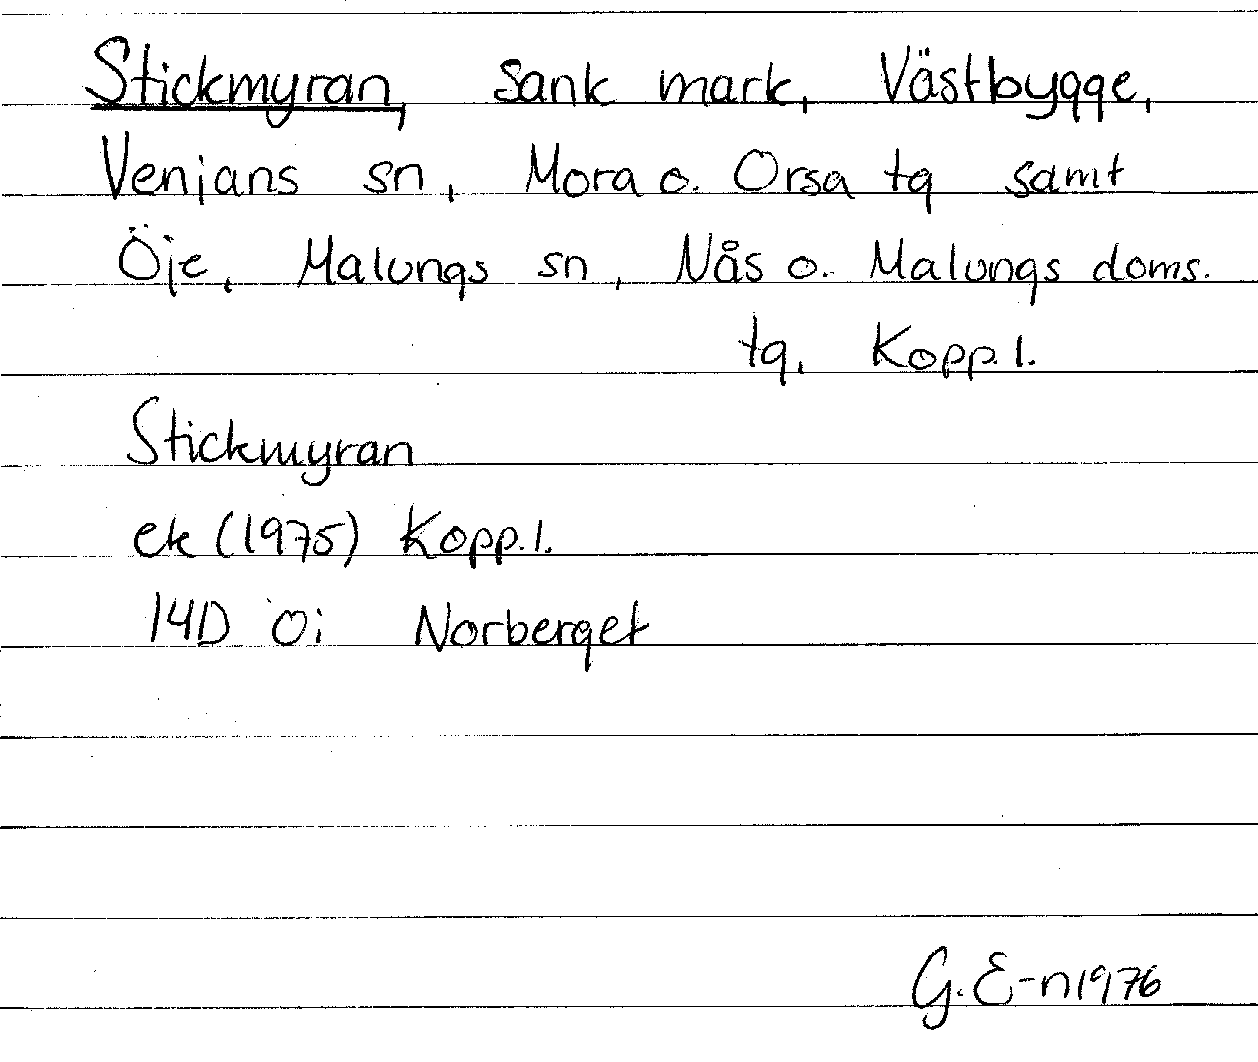 Stickmyran, sank mark, Västbygge,
Venjans sn, Mora o. Orsa tg samt
Öje, Malungs sn, Nås o. Malungs doms.
tg, Kopp. l.
Stickmyran
ek (1975) Kopp. l.
14D 0i Norberget
G. E-n 1976